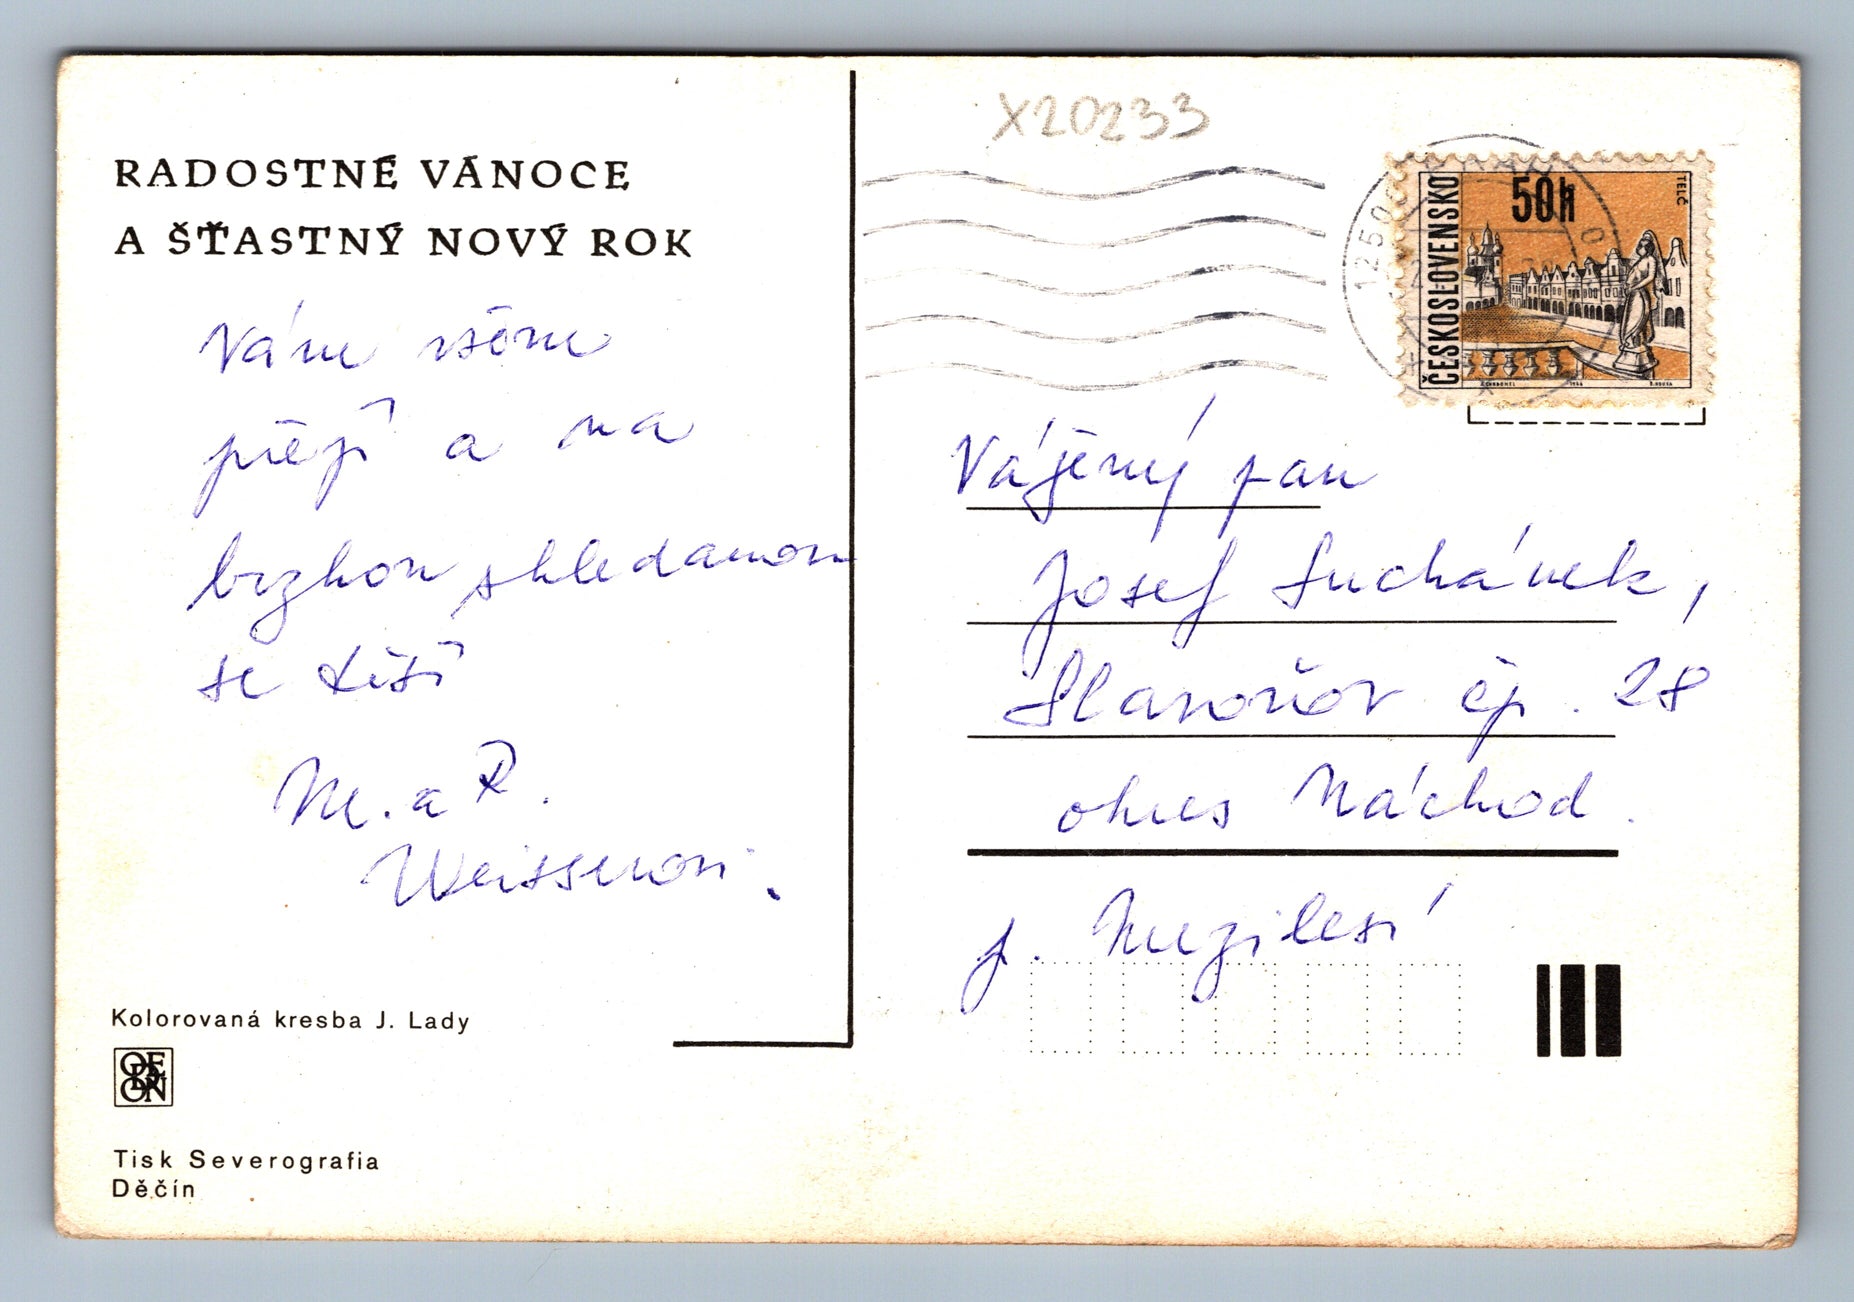 RADOSTNÉ VÁNOCE
A ŠŤASTNÝ NOVÝ ROK
Vám všem
přejí a na
brzkou shledanou
se těší
M. a R.
Weisserovi.
Kolorovaná kresba J. Lady
ODEON
Tisk Severografia
Děčín
X20233
ČESKOSLOVENSKO
50h
TELČ
Vážený pan
Josef Suchánek,
Slavoňov čp. 28
okres Náchod.
p. Mezilesí